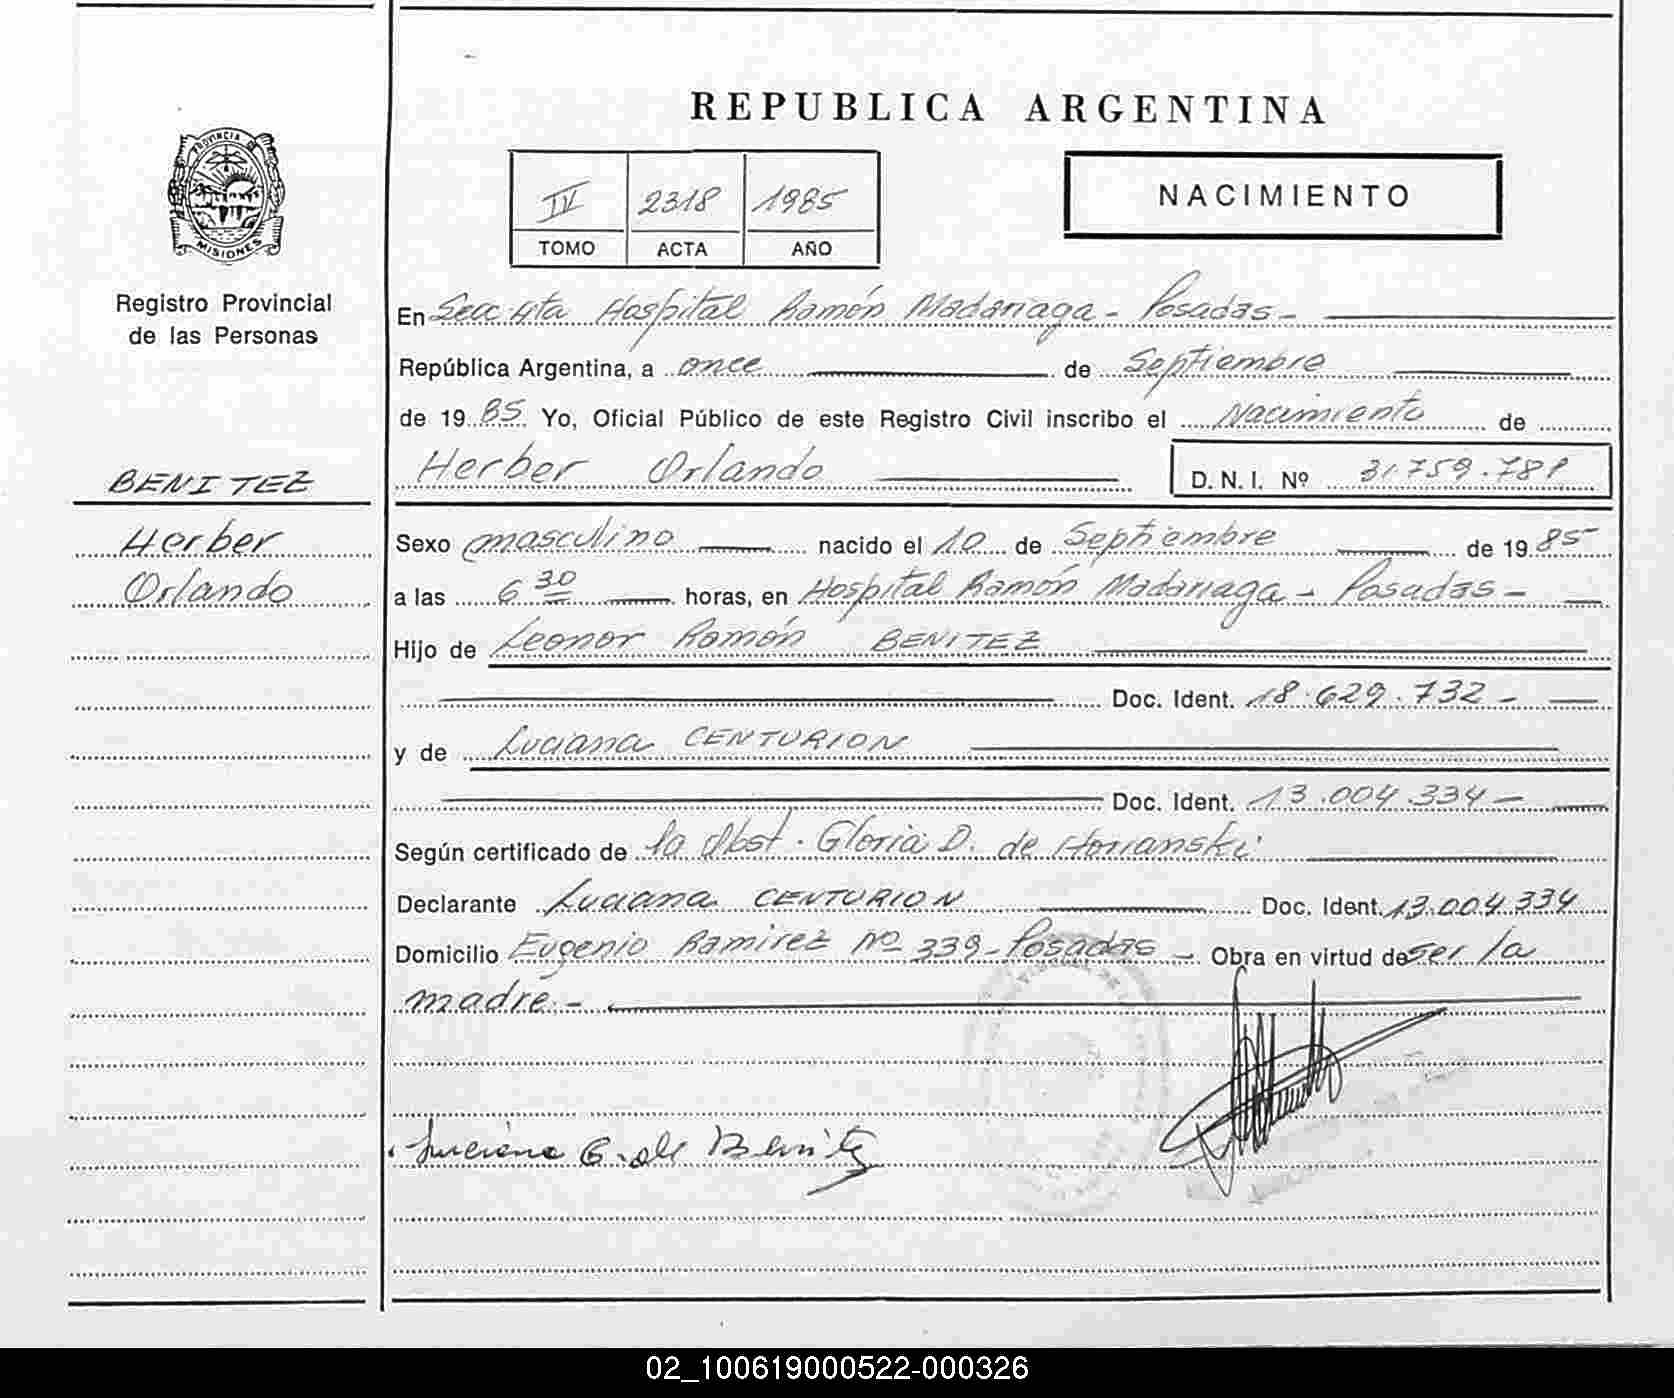 REPUBLICA ARGENTINA
PROVINCIA DE
MISIONES
Registro Provincial
de las Personas
IV 2318 1985
TOMO ACTA AÑO
NACIMIENTO
En Secc 4ta Hospital Ramón Madariaga - Posadas -
República Argentina, a once de Septiembre
de 1985 Yo, Oficial Público de este Registro Civil inscribo el Nacimiento de
Herber Orlando D.N.I. Nº 31.759.781
BENITEZ
Herber
Orlando
Sexo masculino nacido el 10 de Septiembre de 1985
a las 6 30 horas, en Hospital Ramón Madariaga - Posadas -
Hijo de Leonor Ramón BENITEZ
Doc. Ident. 18.629.732 -
y de Luciana CENTURION
Doc. Ident. 13.004.334 -
Según certificado de la Obst. Gloria D. de
Declarante Luciana CENTURION Doc. Ident. 13.004.334
Domicilio Eugenio Ramirez Nº 339 - Posadas - Obra en virtud de ser la
madre. -
Luciana C. de Benitez
02_100619000522-000326